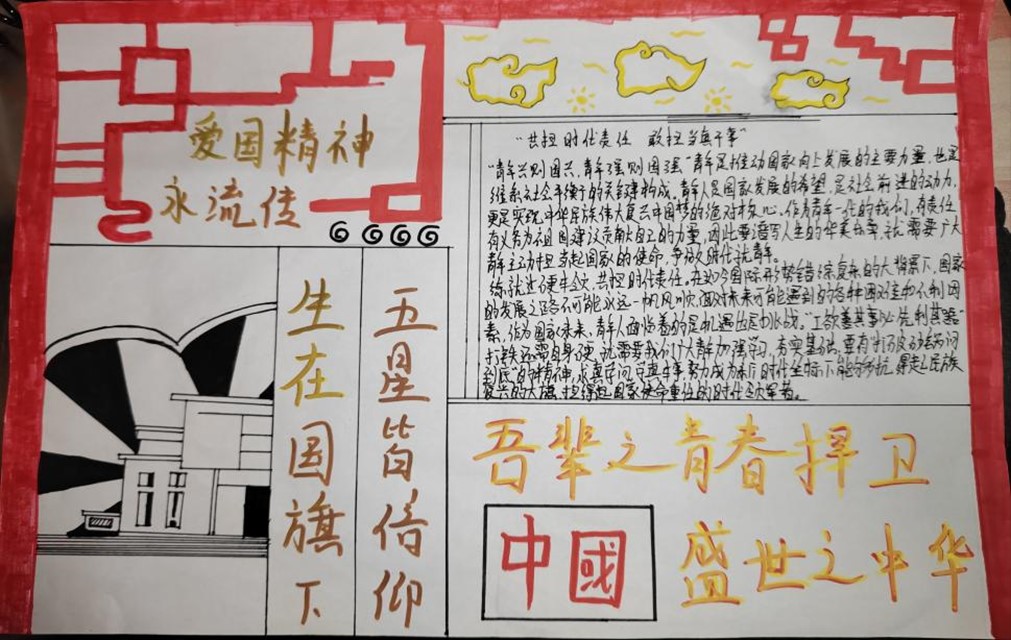 爱国精神
永流传
五星皆倍仰
生在国旗下
"共担时代责任 敢担当真干事"
"青年兴则国兴,青年强则国强"青年是推动国家向上发展的主要力量,也是
维系社会平衡的关键构成。青年人是国家发展的希望,是社会前进的动力,
更是实现中华民族伟大复兴中国梦的绝对核心。作为青年一代的我们,有责任
有义务为祖国建设贡献自己的力量,因此要谱写人生的华美乐章,就需要广大
青年主动担当起国家的使命,争做人时代新青年。
练就过硬本领,共担时代责任。在如今国际形势错综复杂的大背景下,国家
的发展之路不可能永远一帆风顺,面对未来可能遇到的各种困难和不利因
素,作为国家未来,青年人面临着的是机遇也是挑战。"工欲善其事必先利其器"
打铁还需自身硬,就需要我们广大青年加强学习,夯实基础,要有打破砂锅问
到底"的精神,求真学问
复兴的大旗,担得起国家使命重任的时代
吾辈之青春捍卫
盛世之中华
中國